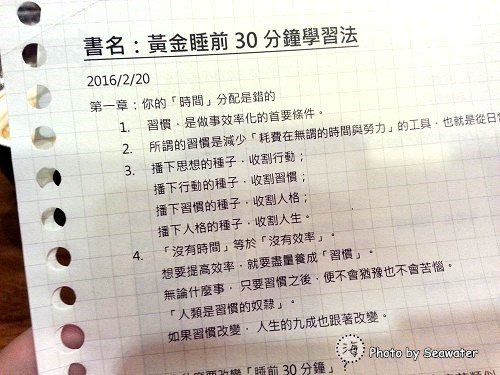 書名：黃金睡前 30 分鐘學習法
2016/2/20
第一章：你的「時間」分配是錯的
1. 習慣，是做事效率化的首要條件。
2. 所謂的習慣是減少「耗費在無謂的時間與勞力」的工具，也就是從日
3. 播下思想的種子，收割行動；
播下行動的種子，收割習慣；
播下習慣的種子，收割人格；
播下人格的種子，收割人生。
4. 「沒有時間」等於「沒有效率」。
想要提高效率，就要盡量養成「習慣」。
無論什麼事，只要習慣之後，便不會猶豫也不會苦惱。
「人類是習慣的奴隸」。
如果習慣改變，人生的九成也跟著改變。
要改變「睡前 30 分鐘」？
海 Photo by Seawater